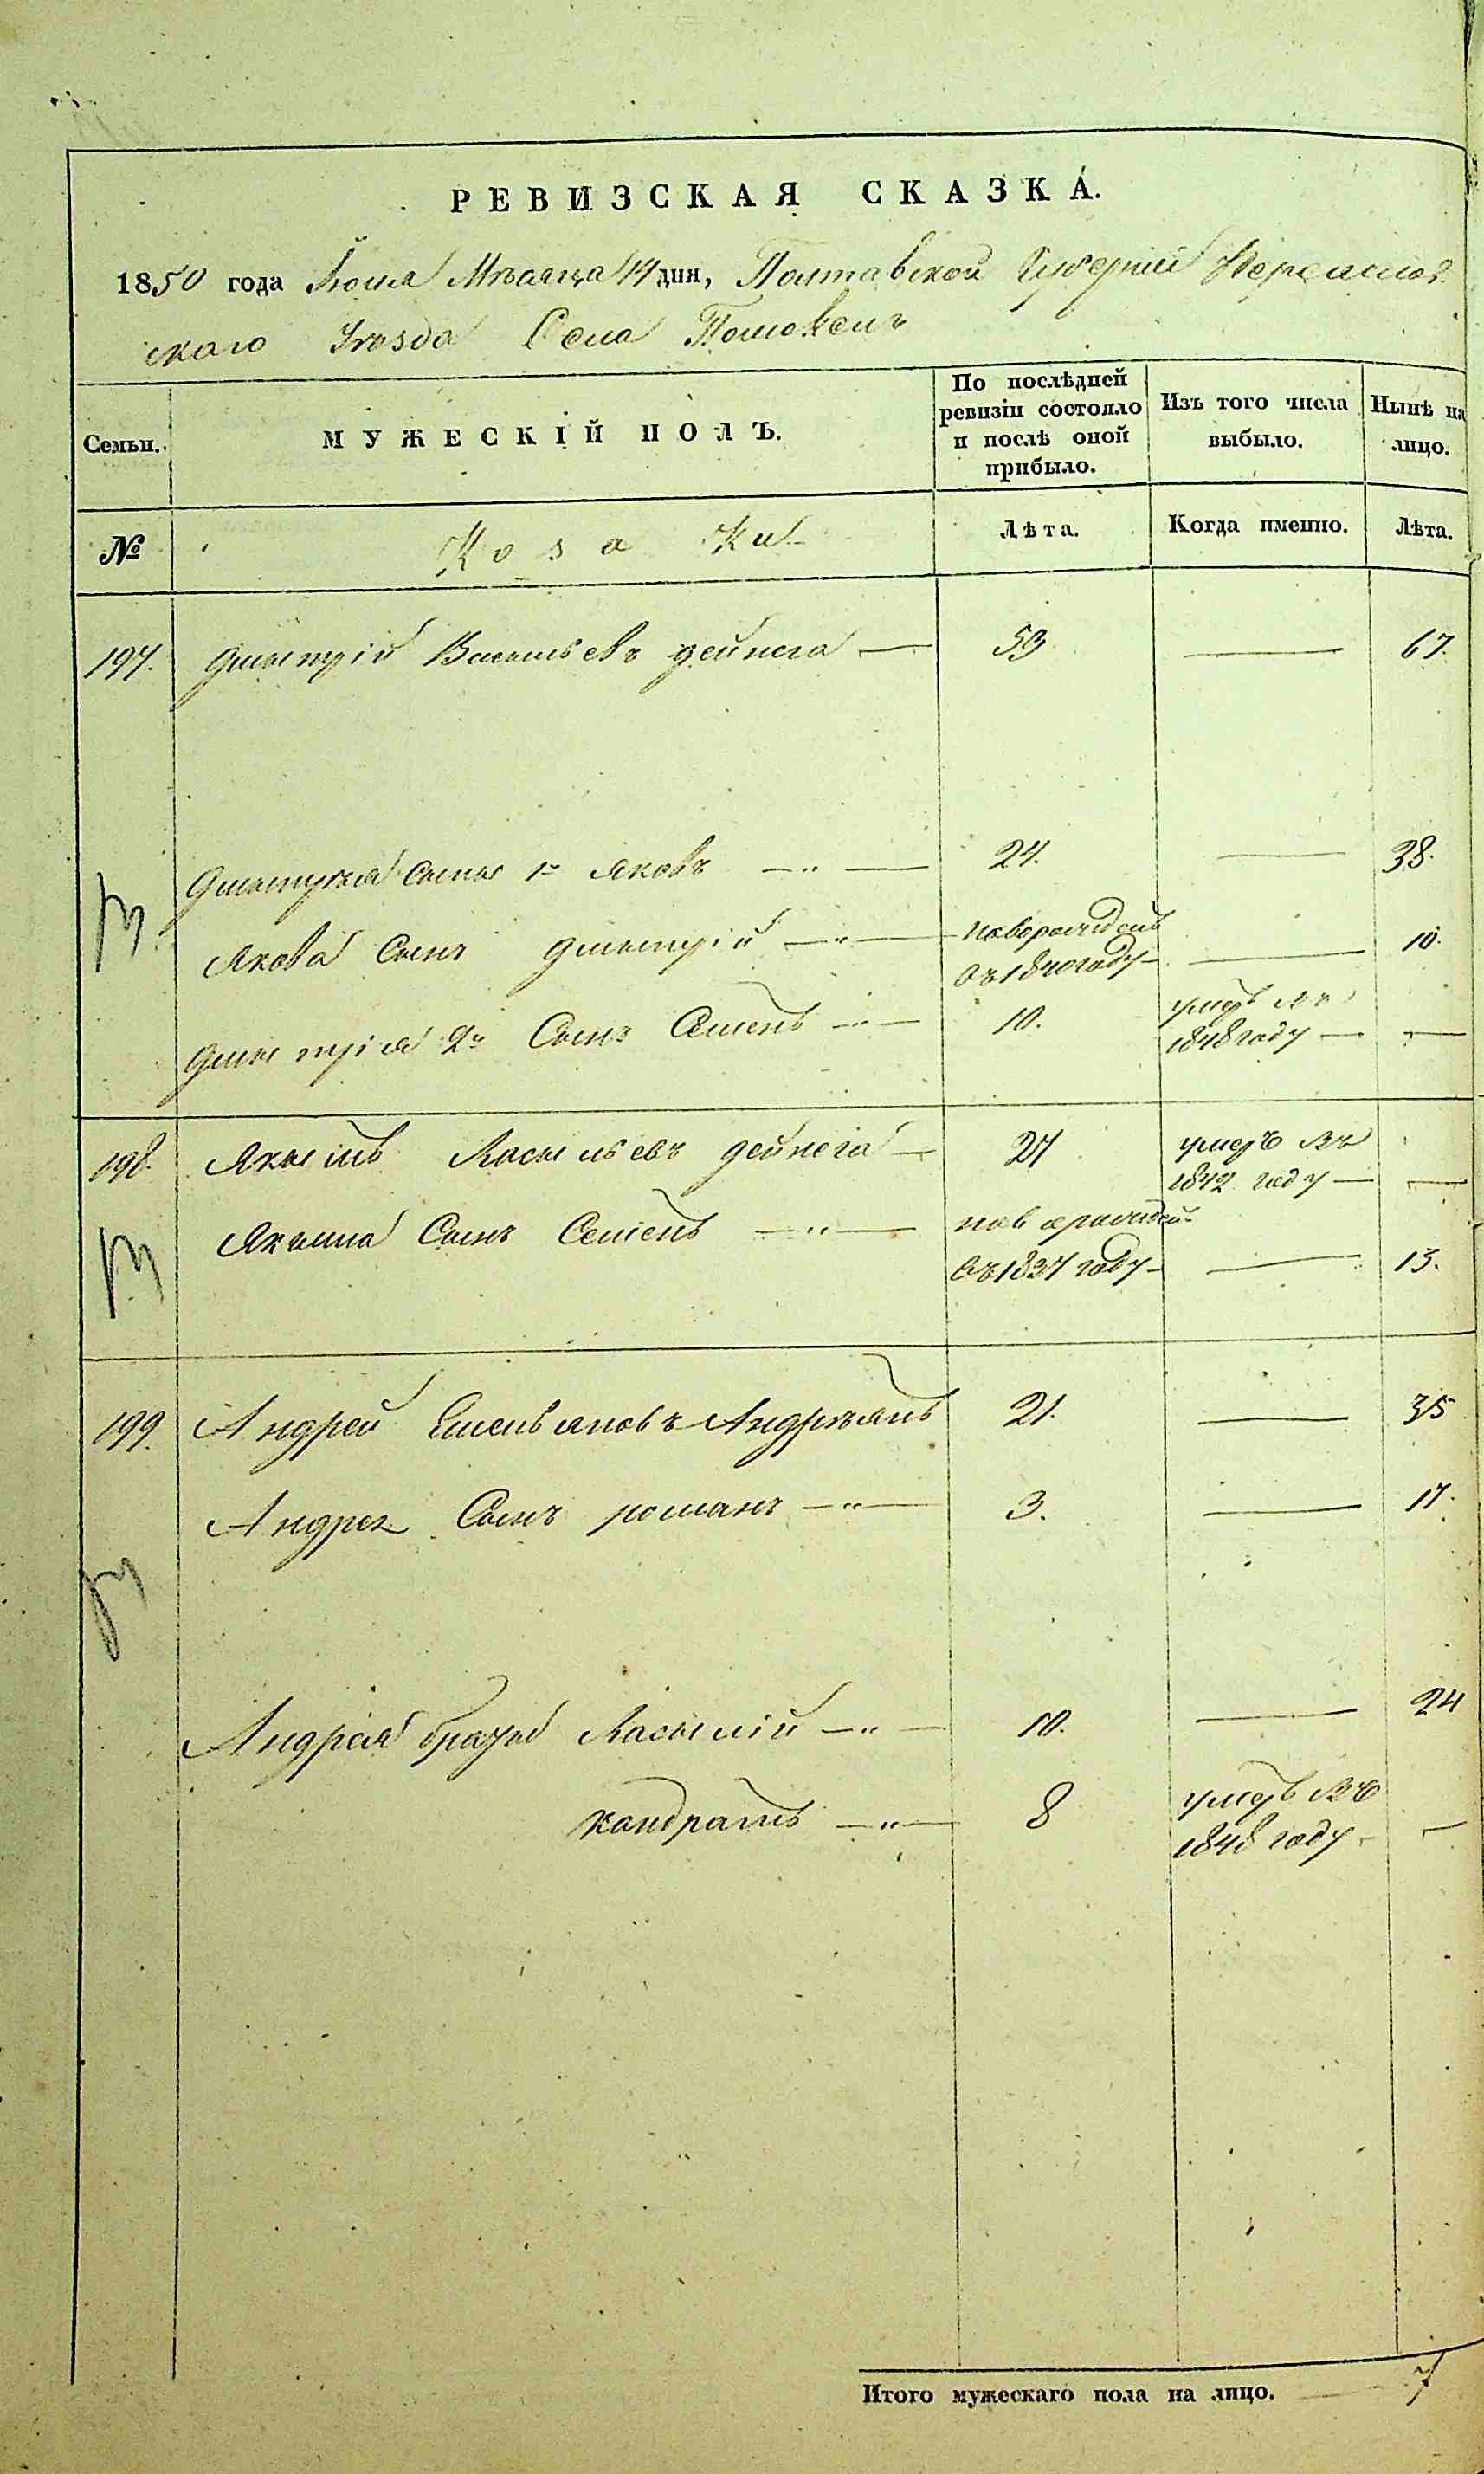 РЕВИЗСКАЯ СКАЗКА.
1850 года Мѣсяца 14 дня, Полтавской Губерніи
скаго Уѣзда Села
Семьи. МУЖЕСКІЙ ПОЛЪ. По послѣдней ревизіи состояло и послѣ оной прибыло. Изъ того числа выбыло. Нынѣ на лицо.
№ Козаки Лѣта. Когда именно. Лѣта.
197. Дмытрій Васыльевъ Дейнега — 53 — 67.
Дмытрія сыны 1й Яковъ —„— 24. — 38.
Якова Сынъ Дмытрій —„— новорожденъ
въ 1840 году — — 10.
Дмытрія 2й Сынъ Семенъ —„— 10. умеръ въ
1848 году — —
198. Якымъ Васыльевъ Дейнега — 27 умеръ въ
1842 году — —
Якыма Сынъ Семенъ —„— новорожден
въ 1837 году — — 13.
199. Андрей Емельяновъ Андрѣянъ 21. — 35
Андрея Сынъ романъ —„— 3. — 17.
Андрея братья Васылій —„— 10. — 24
кондратъ —„— 8 умеръ въ
1848 году — —
Итого мужескаго пола на лицо. — 7